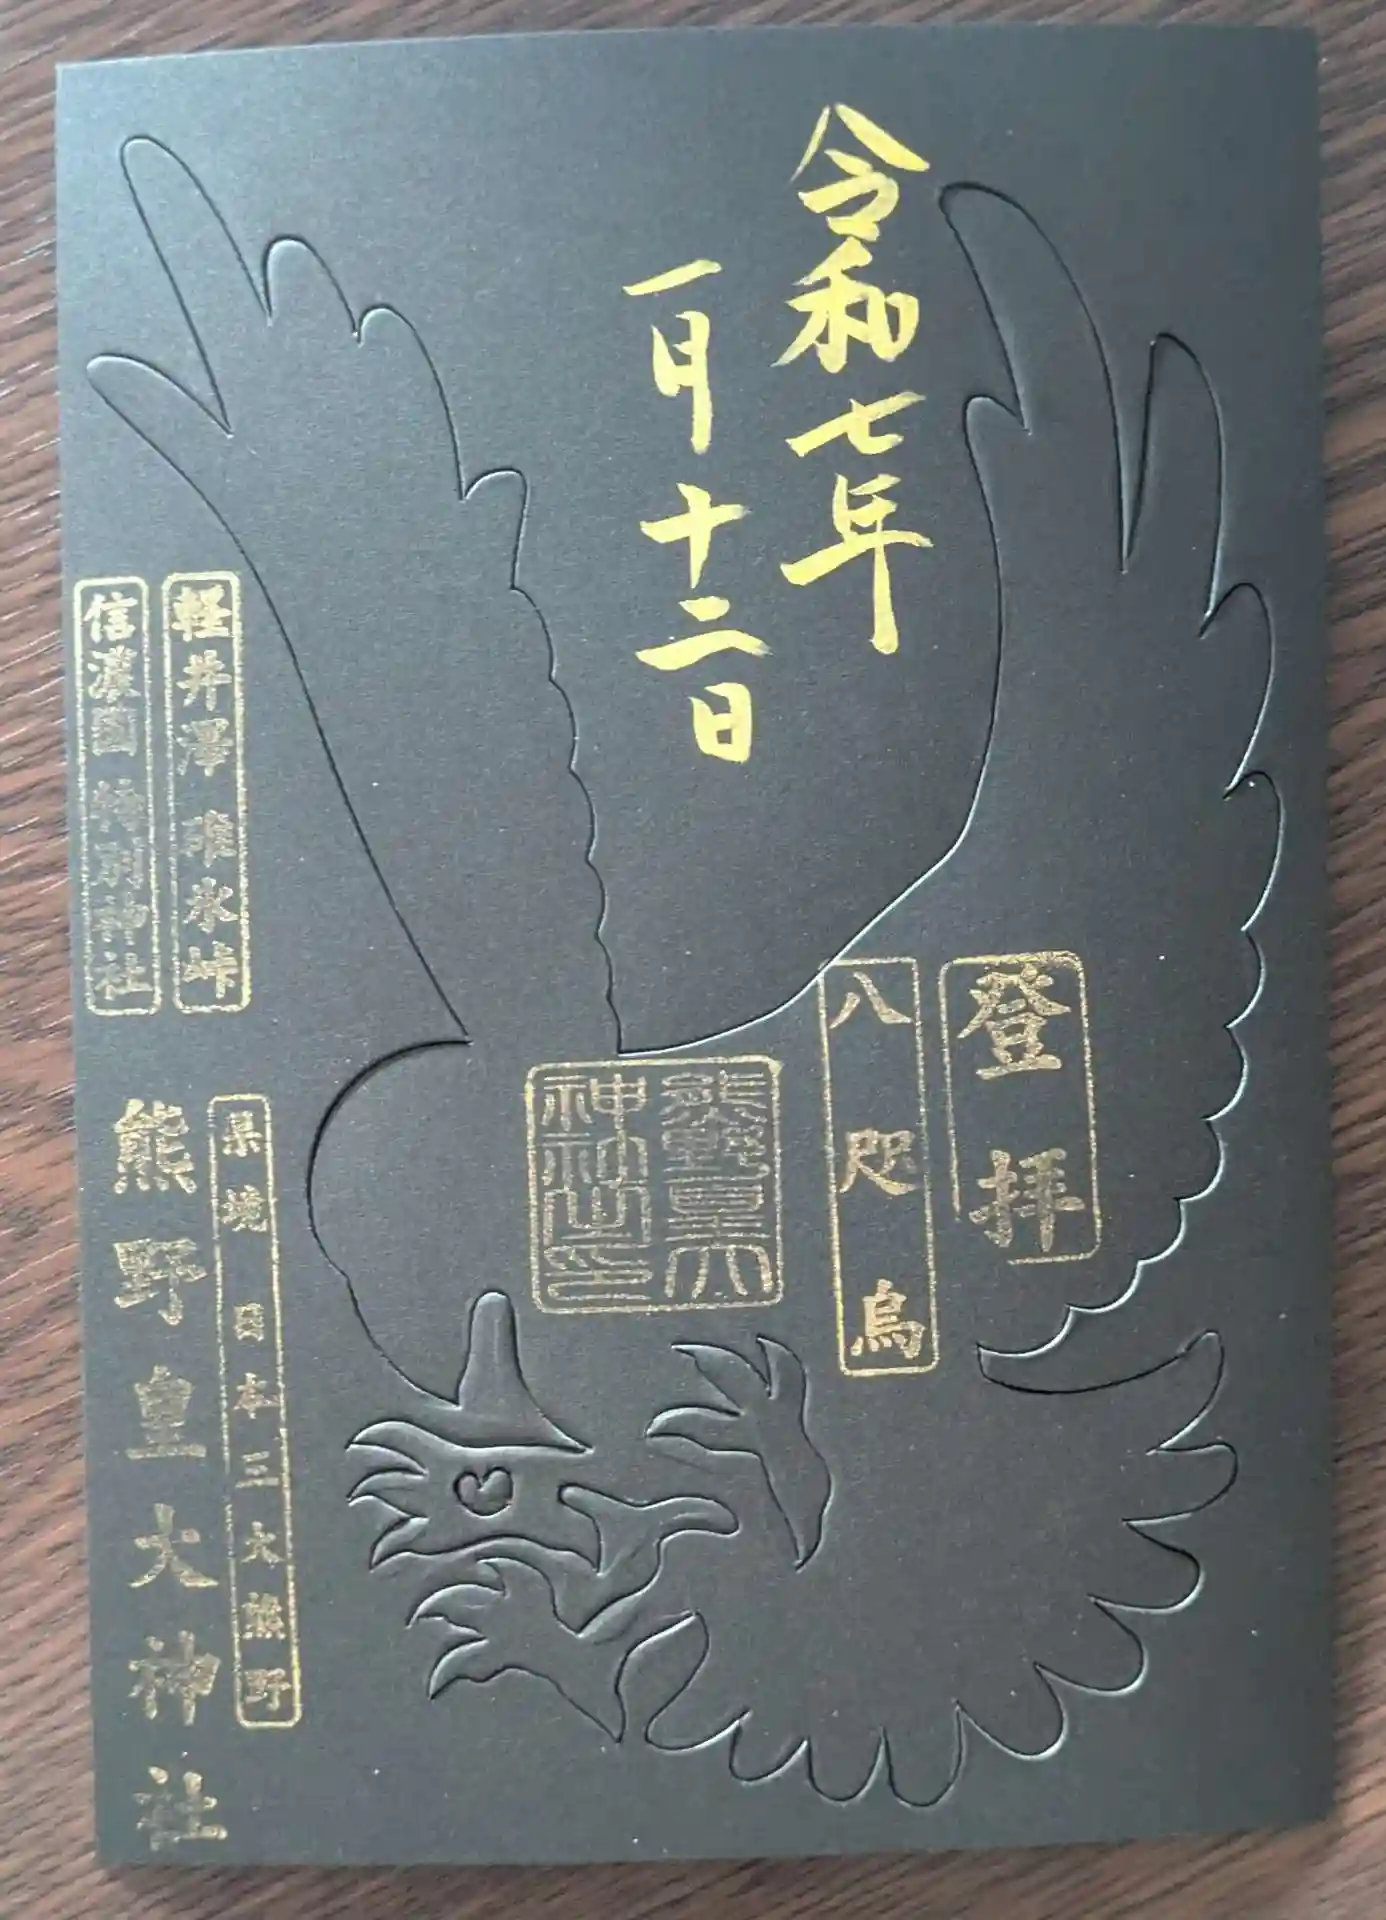 令和七年
一月十二日
登拝
八咫烏
熊野皇大
神社之印
軽井澤 碓氷峠
信濃國 特別神社
県境 日本三大熊野
熊野皇大神社